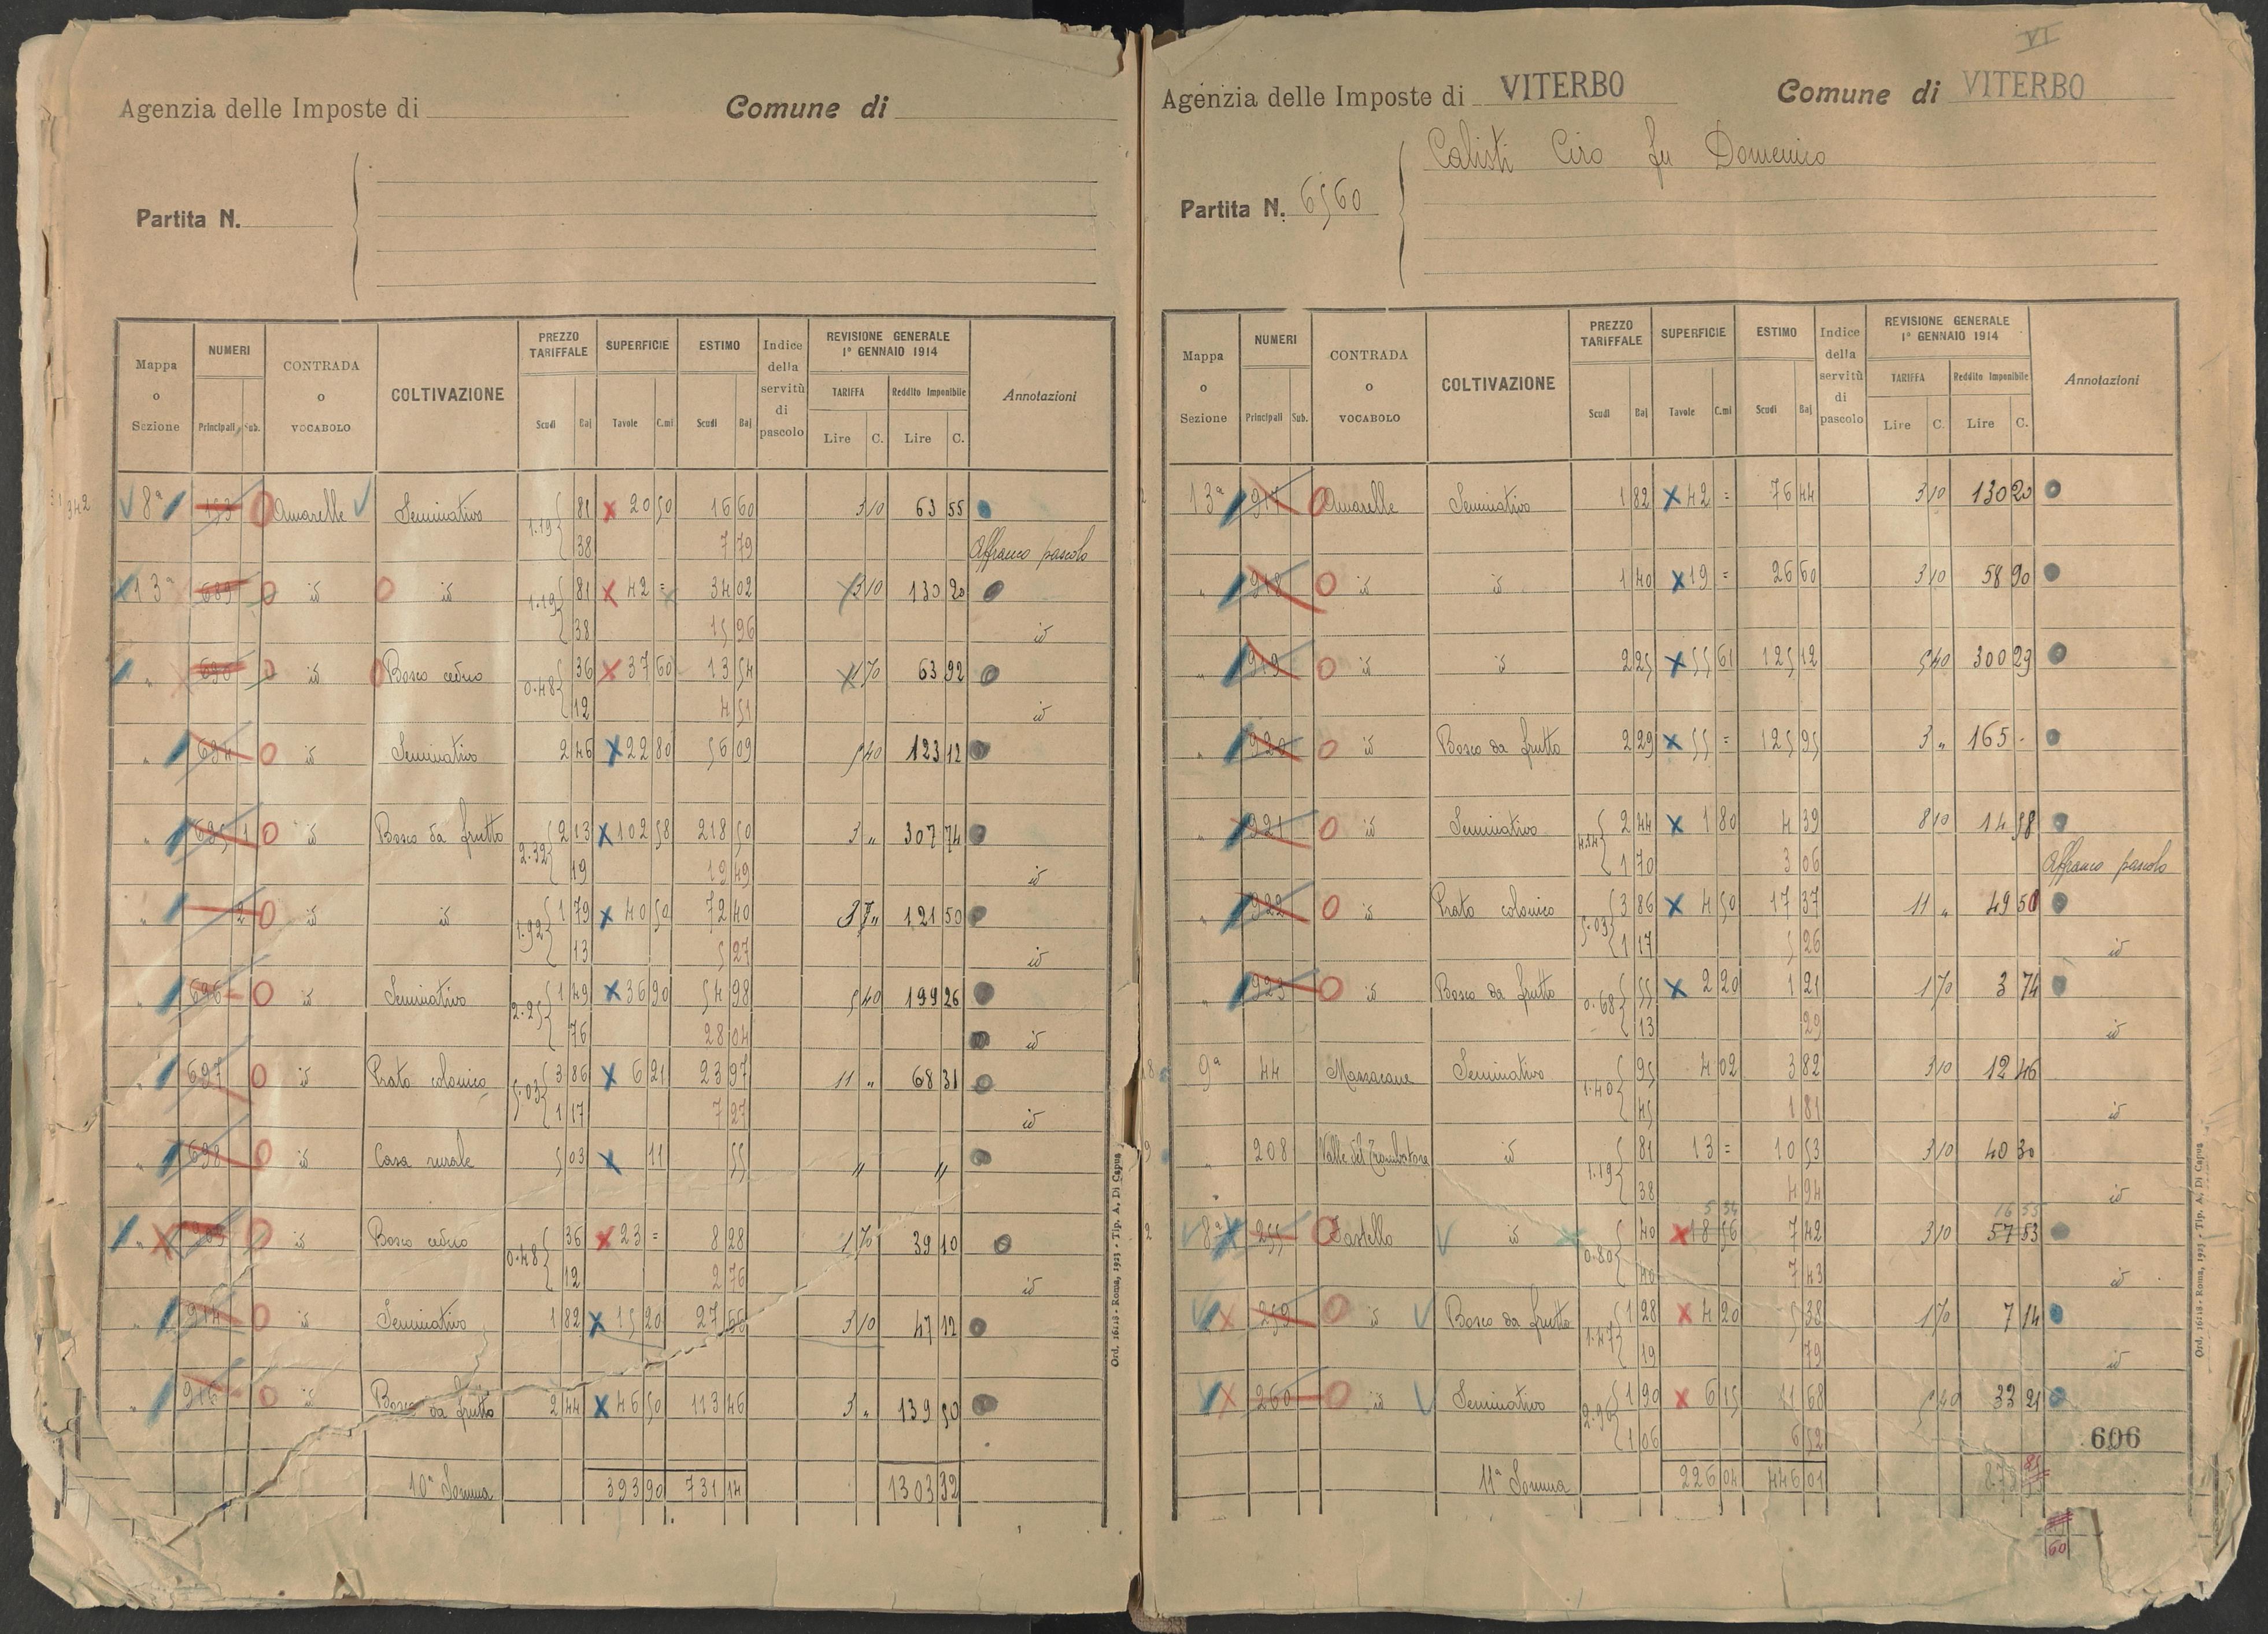 Agenzia delle Imposte di
Comune di
Partita N.
Mappa o Sezione
NUMERI
Principali
Sub.
CONTRADA o VOCABOLO
COLTIVAZIONE
PREZZO TARIFFALE
Scudi
Baj
SUPERFICIE
Tavole
C.mi
ESTIMO
Scudi
Baj
Indice della servitù di pascolo
REVISIONE GENERALE 1° GENNAIO 1914
TARIFFA
Lire
C.
Reddito Imponibile
Lire
C.
Annotazioni
8ª 193 Amarelle Seminativo 1.19 81 20 50 16 60 3 10 63 55
38 7 79 Affranco pascolo
13ª 689 id id 1.19 81 42 = 34 02 3 10 130 20
38 15 96 id
" 690 id Bosco ceduo 0.48 36 37 60 13 54 1 70 63 92
12 4 51 id
" 694 id Seminativo 2 46 22 80 56 09 5 40 123 12
" 695 1 id Bosco da frutto 2.32 2 13 102 58 218 50 3 " 307 74
19 19 49 id
" 2 id id 1.92 1 79 40 50 72 40 3 " 121 50
13 5 27 id
" 696 id Seminativo 2.25 1 49 36 90 54 98 5 40 199 26
76 28 04 id
" 697 id Prato colonico 5.03 3 86 6 21 23 97 11 " 68 31
1 17 7 27 id
" 698 id Casa rurale 5 03 11 55 " "
" id Bosco ceduo 0.48 36 23 = 8 28 1 70 39 10
12 2 76 id
" 914 id Seminativo 1 82 15 20 27 66 3 10 47 12
" 916 id Bosco da frutto 2 44 46 50 113 46 3 " 139 50
10ª Somma 393 90 731 14 1303 32
Ord. 16118 - Roma, 1923 - Tip. A. Di Capua
VI
Agenzia delle Imposte di VITERBO
Comune di VITERBO
Calisti Ciro fu Domenico
Partita N. 6560
Mappa o Sezione
NUMERI
Principali
Sub.
CONTRADA o VOCABOLO
COLTIVAZIONE
PREZZO TARIFFALE
Scudi
Baj
SUPERFICIE
Tavole
C.mi
ESTIMO
Scudi
Baj
Indice della servitù di pascolo
REVISIONE GENERALE 1° GENNAIO 1914
TARIFFA
Lire
C.
Reddito Imponibile
Lire
C.
Annotazioni
13ª 917 Amarelle Seminativo 1 82 42 = 76 44 3 10 130 20
" 918 id id 1 40 19 = 26 60 3 10 58 90
" 919 id id 2 25 55 61 125 12 5 40 300 29
" 920 id Bosco da frutto 2 29 55 = 125 95 3 " 165 -
" 921 id Seminativo 4.14 2 44 1 80 4 39 8 10 14 58
1 70 3 06 Affranco pascolo
" 922 id Prato colonico 5.03 3 86 4 50 17 37 11 " 49 50
1 17 5 26 id
" 923 id Bosco da frutto 0.68 55 2 20 1 21 1 70 3 74
13 29 id
9ª 44 Massacane Seminativo 1.40 95 4 02 3 82 3 10 12 46
45 1 81 id
" 208 Valle del Trombatore id 1.19 81 13 = 10 53 3 10 40 30
38 4 94 id
5 34 16 55
8ª 255 Castello id 0.80 40 18 56 7 42 3 10 57 53
40 7 43 id
259 id Bosco da frutto 1.47 1 28 4 20 5 38 1 70 7 14
19 79 id
260 id Seminativo 2.96 1 90 6 15 11 68 5 40 33 21
1 06 6 52
606
11ª Somma 226 04 446 01
60
Ord. 16118 - Roma, 1923 - Tip. A. Di Capua